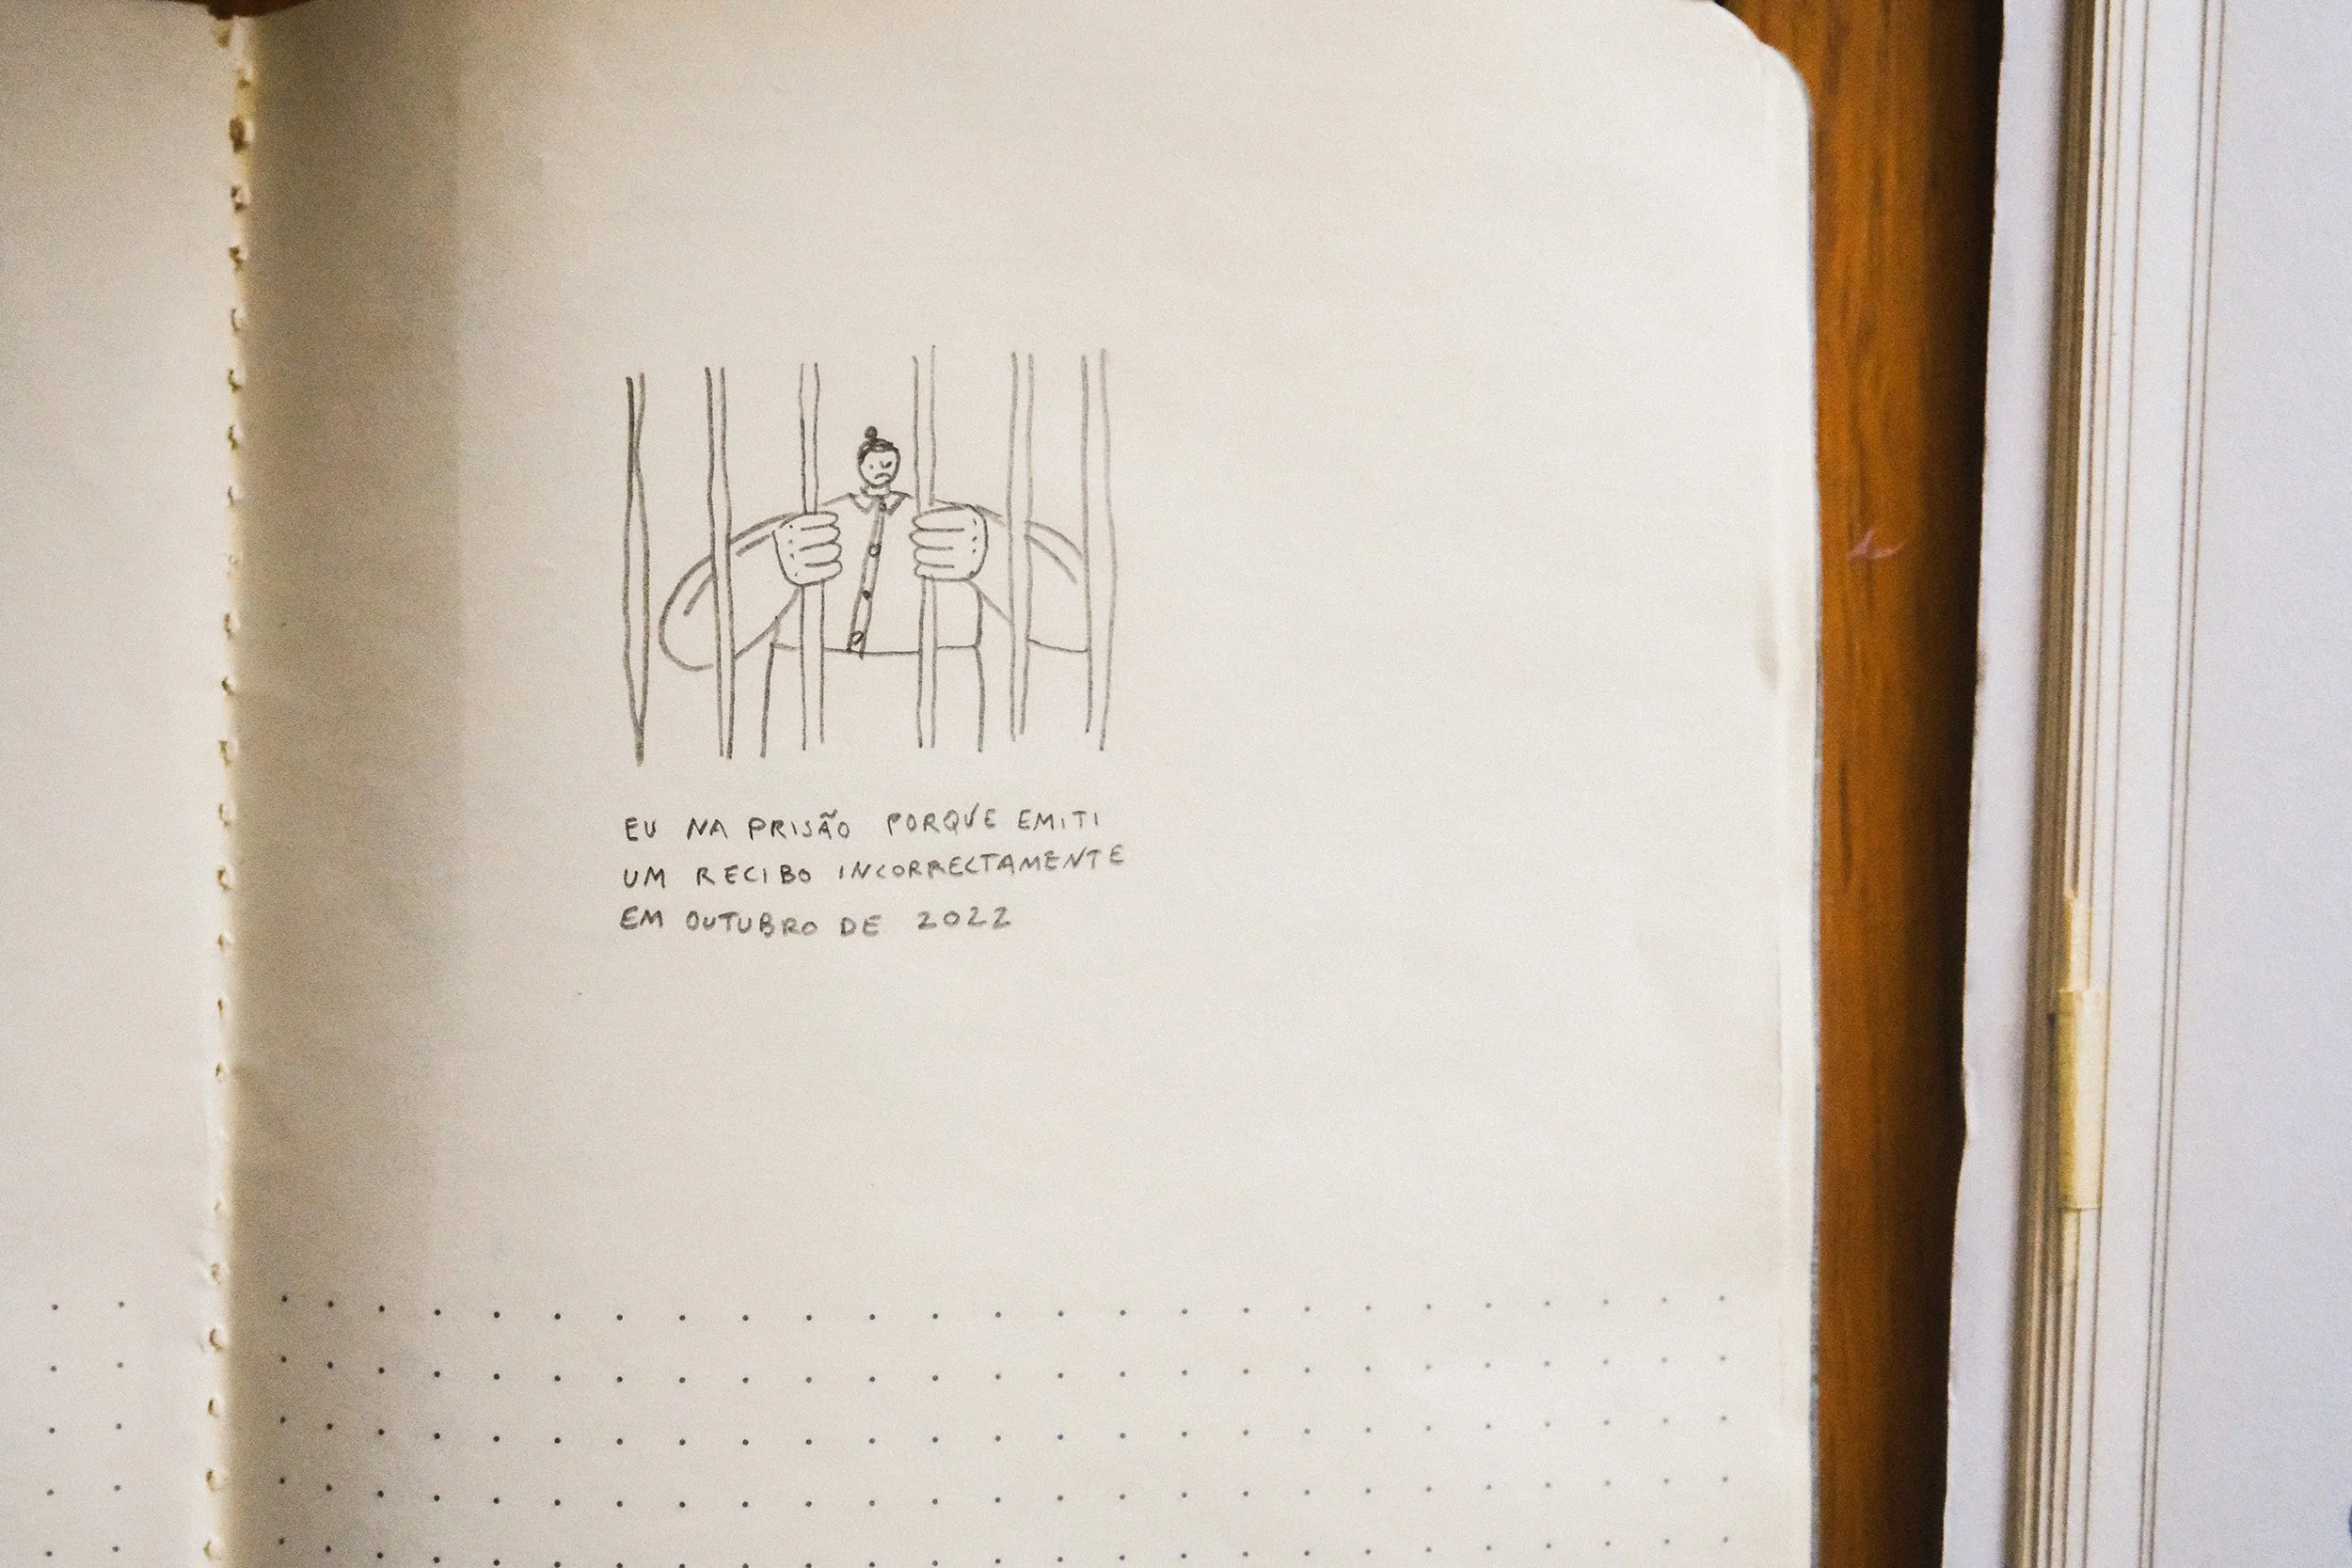 EU NA PRISÃO PORQUE EMITI
UM RECIBO INCORRECTAMENTE
EM OUTUBRO DE 2022